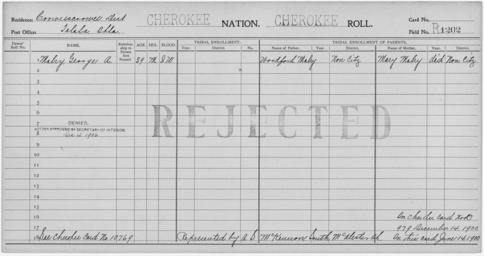 Residence: Cooweescoowee Dist
CHEROKEE NATION. CHEROKEE ROLL.
Card No.
Post Office: Talala Okla.
Field No. R 1202
Dawes' Roll No. NAME. Relationship to Person First Named AGE. SEX. BLOOD
TRIBAL ENROLLMENT. Year. District. No.
TRIBAL ENROLLMENT OF PARENTS. Name of Father. Year. District. Name of Mother. Year. District.
1 Mabry George A. 39 M I W Woodford Mabry Non City Mary Mabry dead Non City
2
3
4
5
6
7 DENIED.
8
9
10
11
12
13
14
15
16
17
REJECTED
On Cherokee card No D
979 December 14, 1900
See Cherokee Card No 10769 Represented by A. S. McKennon South McAlester On this card June 14, 1900